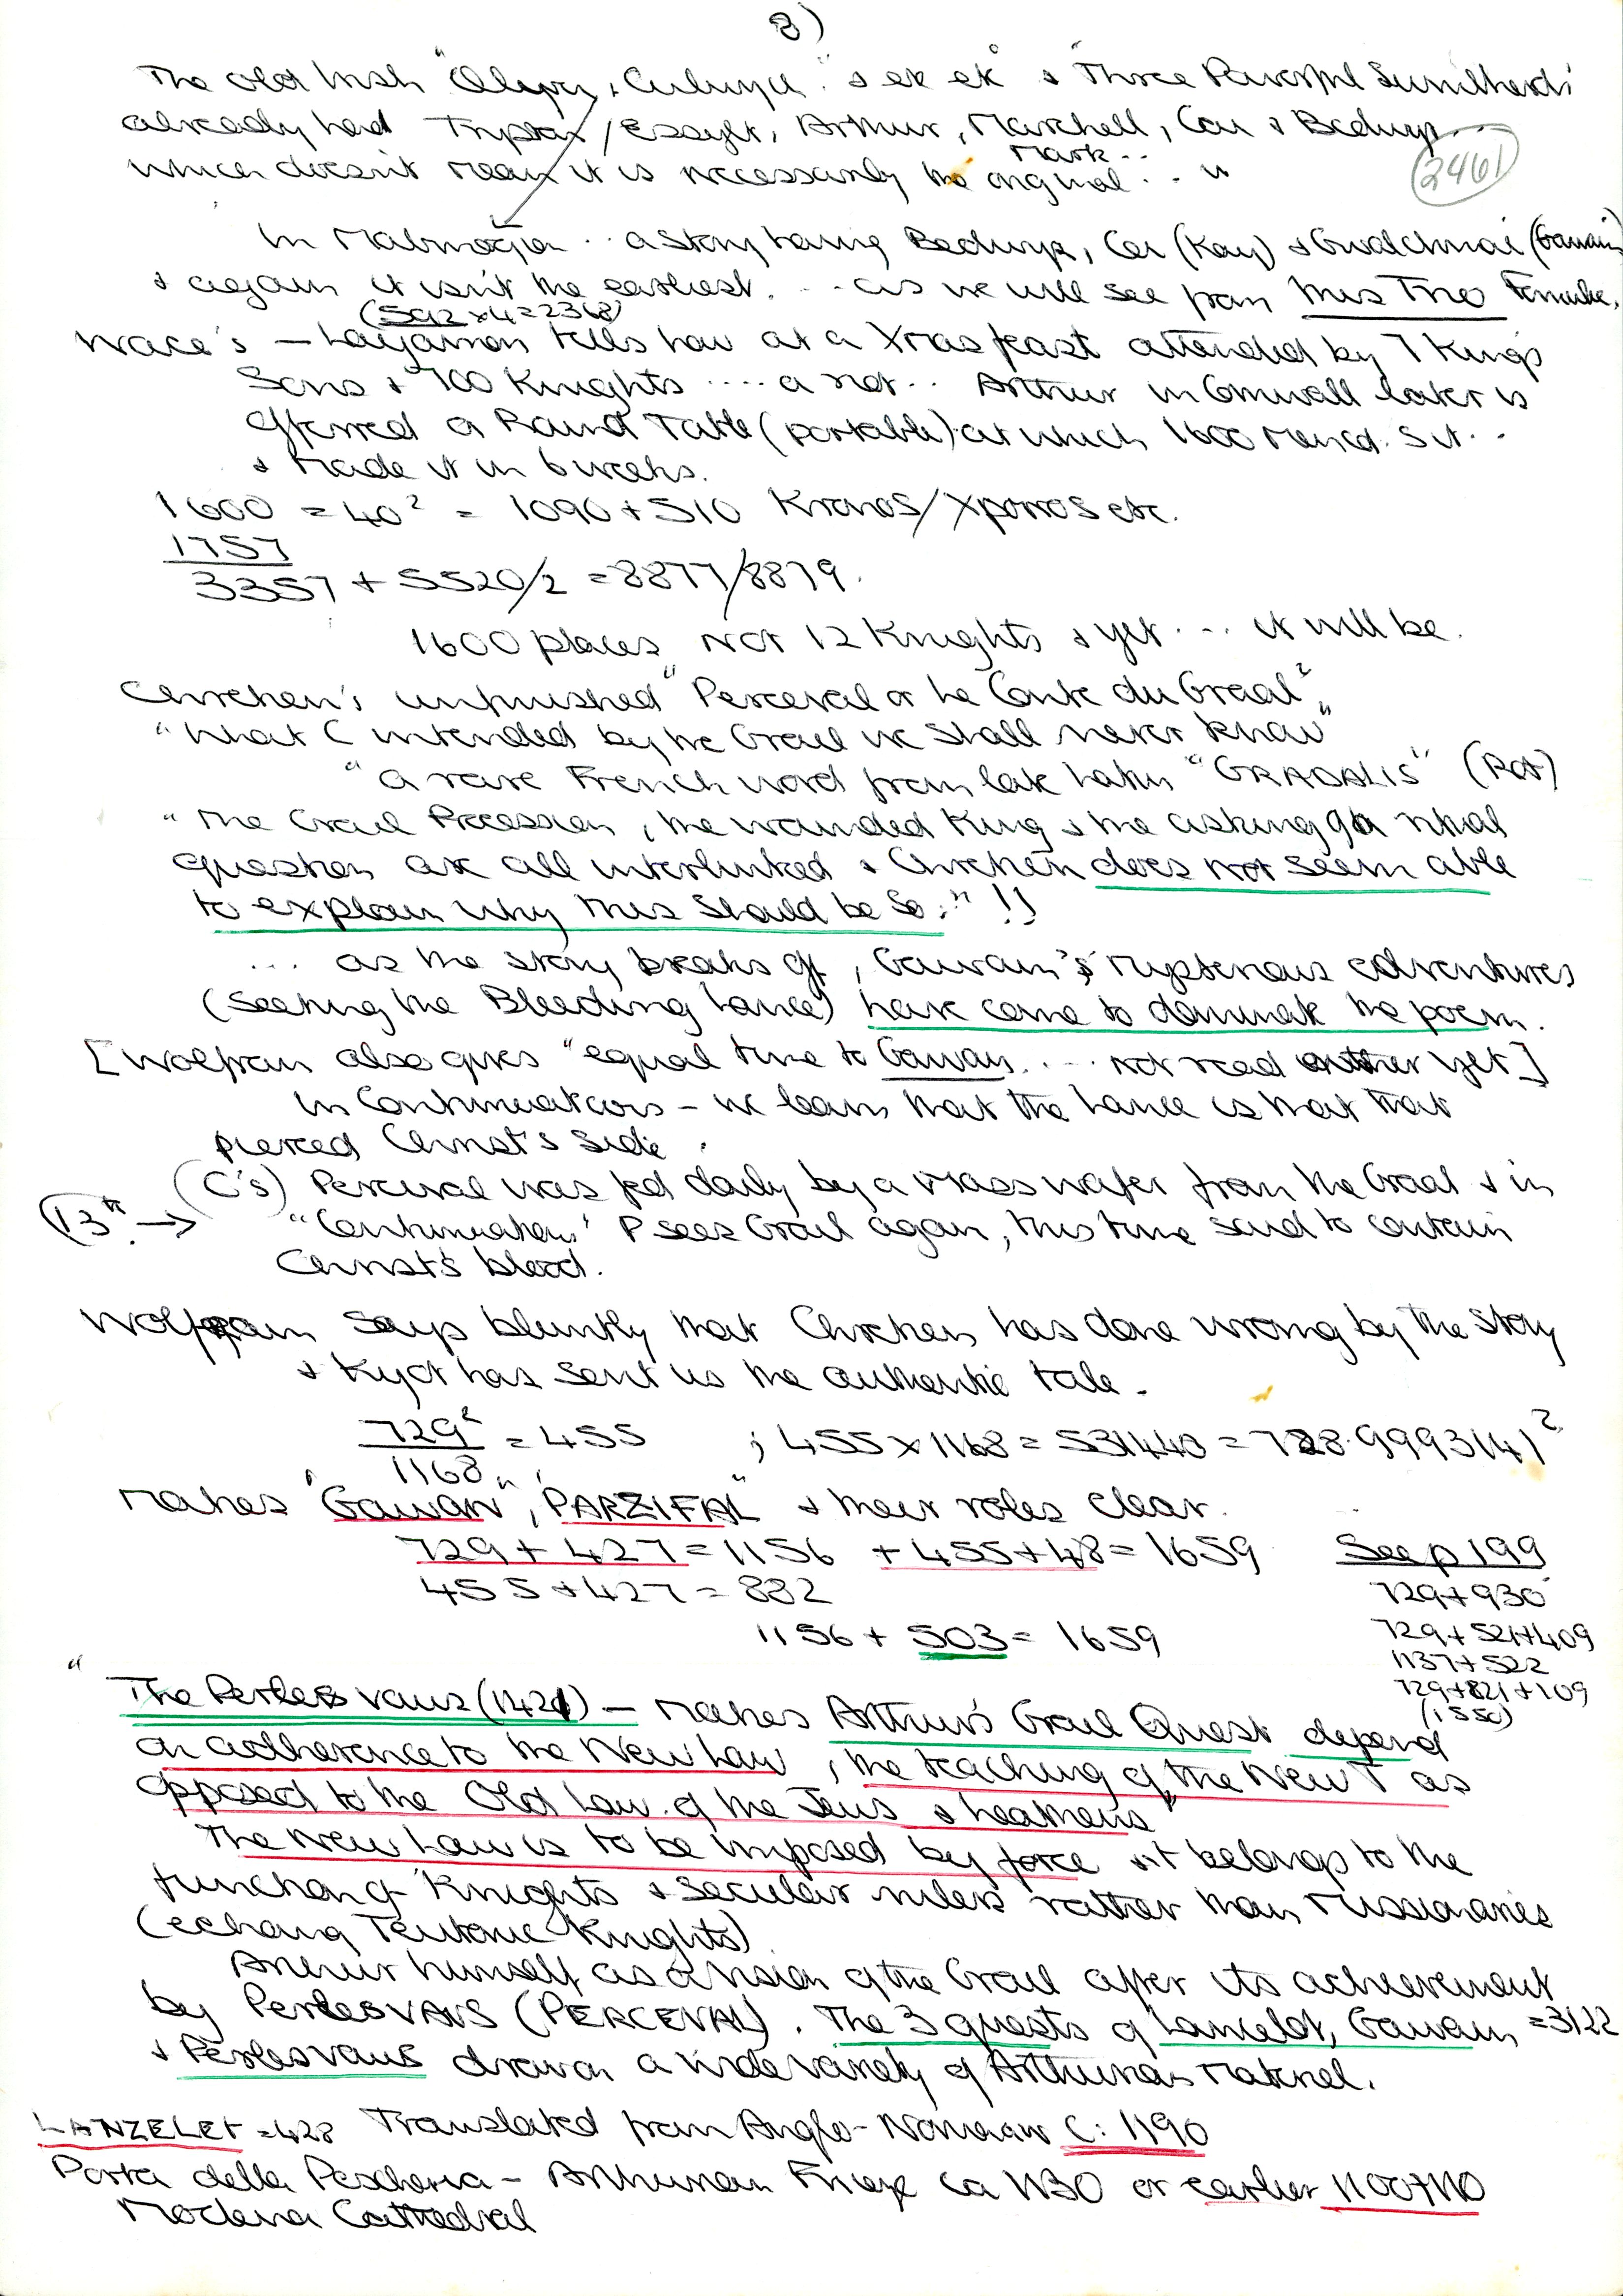 8)
The Old Irish "Olwyn & Culwych" & ek ek & Three Powerful Swineherds
already had Trystan / Essyllt, Arthur, Marchell, Cai & Bedwyr...
Mark..
which doesn't mean it is necessarily the original... "
2461
In Mabinogion .. a story having Bedwyr, Cei (Kay) & Gwalchmai (Gawain)
& again it isn't the earliest. ... as we will see from this Trio Female.
(592 x 4 = 2368)
Wace's — Layamon tells how at a Xmas feast attended by 7 Kings
Sons & 700 Knights .... a riot .. Arthur in Cornwall later is
offered a Round Table (portable) at which 1600 men cd. sit..
& made it in 6 weeks.
1600 = 40² = 1090 + 510 Kronos/Xporros etc.
1757
3357 + 5520/2 = 8877/8879.
1600 places not 12 Knights & yet ... it will be.
Chretien's unfinished "Perceval or Le Conte du Graal"
"What C intended by the Grail we shall never know"
"a rare French word from late Latin "GRADALIS" (Rot)
"The Grail Procession, the wounded King & the asking of a ritual
question are all interlinked & Chretien does not seem able
to explain why this should be so." !!
... as the story breaks off, Gawain's mysterious adventures
(seeking the Bleeding Lance) have come to dominate the poem.
[Wolfram also gives "equal time to Gawan. ... not read either yet]
In Continuations - we learn that the Lance is that that
pierced Christ's side.
(C's) Perceval was fed daily by a Mass wafer from the Graal & in
13th → "Continuations" P sees Grail again, this time said to contain
Christ's blood.
Wolfram says bluntly that Chretien has done wrong by the story
& Kyot has sent us the authentic tale.
729²/1168 = 455 ; 455 x 1168 = 531440 = 728.9993141²
Makes "Gawan", "PARZIFAL" & their roles clear.
729 + 427 = 1156 + 455 + 48 = 1659 See p 199
455 + 427 = 882 729 + 930
1156 + 503 = 1659 729 + 521 + 409
1137 + 522
729 + 821 + 109
(1550)
"The Perlesvaus (1421) — makes Arthur's Grail Quest depend
on adherence to the New Law, the teaching of the New T as
opposed to the Old Law of the Jews & heathens"
The New Law is to be imposed by force & it belongs to the
function of Knights & secular rulers rather than missionaries
(echoing Teutonic Knights)
Arthur himself has a vision of the Grail after its achievement
by Perlesvaus (PERCEVAL). The 3 quests of Lancelot, Gawain, = 3122
& Perlesvaus draw on a wide variety of Arthurian material.
LANZELET = 428 Translated from Anglo-Norman C: 1190
Porta della Pescheria - Arthurian Frieze ca 1130 or earlier 1100+1110
Modena Cathedral